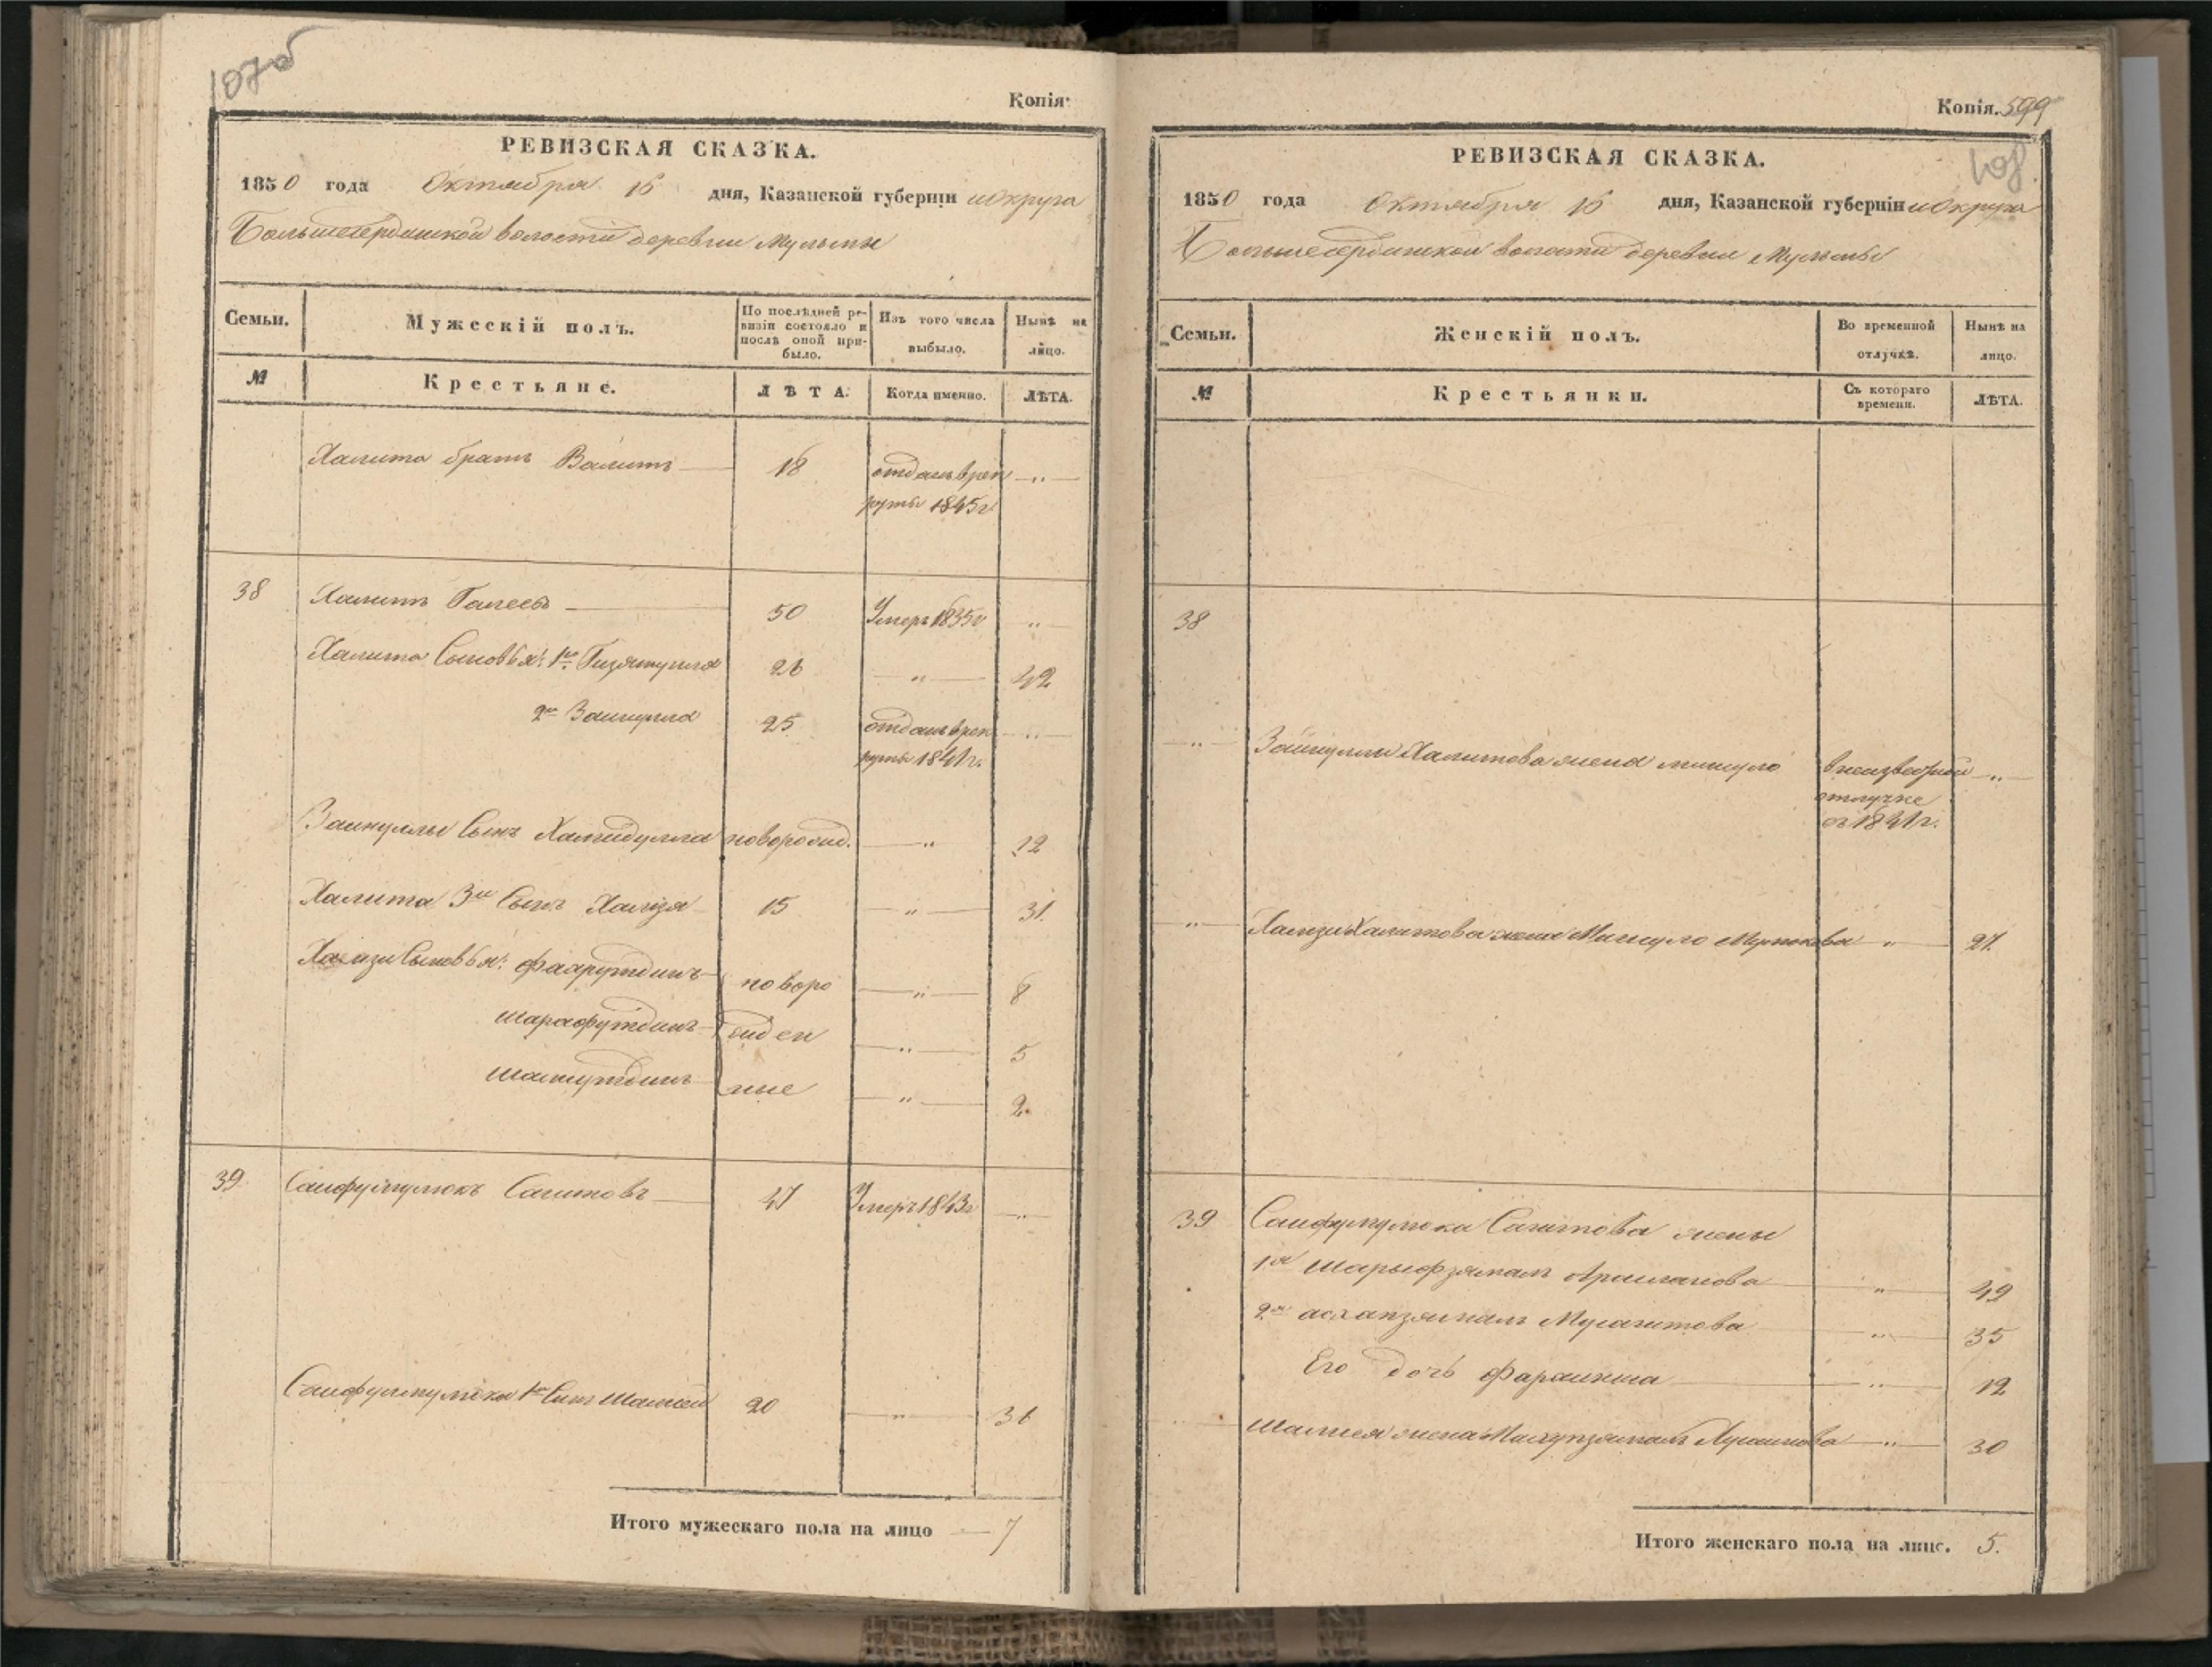 107об
Копія.
РЕВИЗСКАЯ СКАЗКА.
1850 года Октября 16 дня, Казанской губерніи и округа
Большесердинской волости деревни Мульмы
Семьи.
Мужескій полъ.
По послѣдней ре-
визіи состояло и
послѣ оной при-
было.
Изъ того числа
выбыло.
Нынѣ на
лицо.
№
Крестьяне.
ЛѢТА.
Когда именно.
ЛѢТА.
Халита братъ Валитъ 18 отданъ врек „
руты 1845г
38 Халитъ 50 Умеръ 1835г „
Халита Сыновья: 1й Гизятулла 26 „ 42
2й Зайнулла 25 отданъ врек „
руты 1841г.
Зайнуллы Сынъ Хамидулла новорожд. „ 12
Халита 3й Сынъ Хамзя 15 „ 31.
Хамзи Сыновья: Фахрутдинъ новоро „ 8
Шарафутдинъ жден „ 5
ные „ 2.
39 Сайфулмулюкъ Сагитовъ 47 Умеръ 1843г „
Сайфулмулюка 1й Сынъ 20 „ 36
Итого мужескаго пола на лицо 7
Копія. 599
108.
РЕВИЗСКАЯ СКАЗКА.
1850 года Октября 16 дня, Казанской губерніи и округа
Большесердинской волости деревни Мульмы
Семьи.
Женскій полъ.
Во временной
отлучкѣ.
Нынѣ на
лицо.
№
Крестьянки.
Съ котораго
времени.
ЛѢТА.
38
„ Зайнуллы Халитова жена в неизвестной „
отлучке
съ 1841г.
„ Хамзи Халитова жена „ 27.
39 Сайфулмулюка Сагитова жены
1я Шарыфзямалъ „ 49
2я „ 35
Его дочь „ 12
жена „ 30
Итого женскаго пола на лицо. 5.